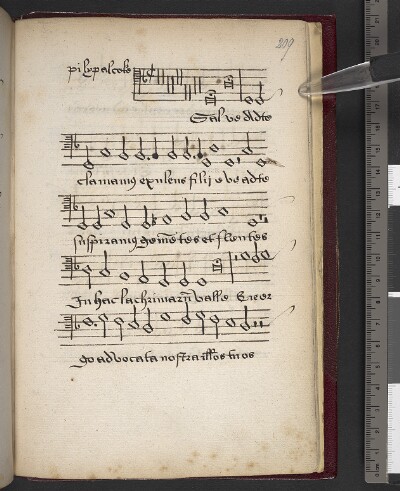 209
Salve Ad te
clamamus exulens filij e ve ad te
suspiramus gementes et flentes
In hac lachrimarum valle E ie er
go advocata nostra illos tuos